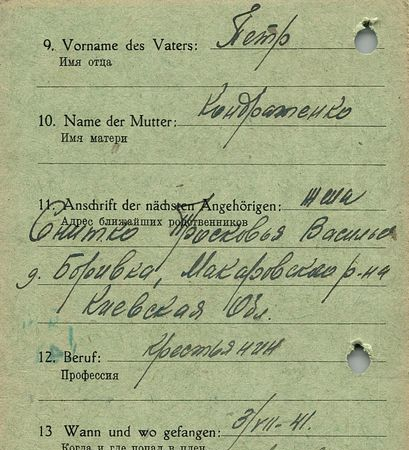 9. Vorname des Vaters: Петр
Имя отца
10. Name der Mutter: Кондратенко
Имя матери
11. Anschrift der nächsten Angehörigen:
Адрес ближайших родственников
Снитко Просковья Василье
д. Боривка, Макаровского р-на
Киевская Обл.
12. Beruf: Крестьянин
Профессия
13 Wann und wo gefangen: 3/VII-41.
Когда и где попал в плен